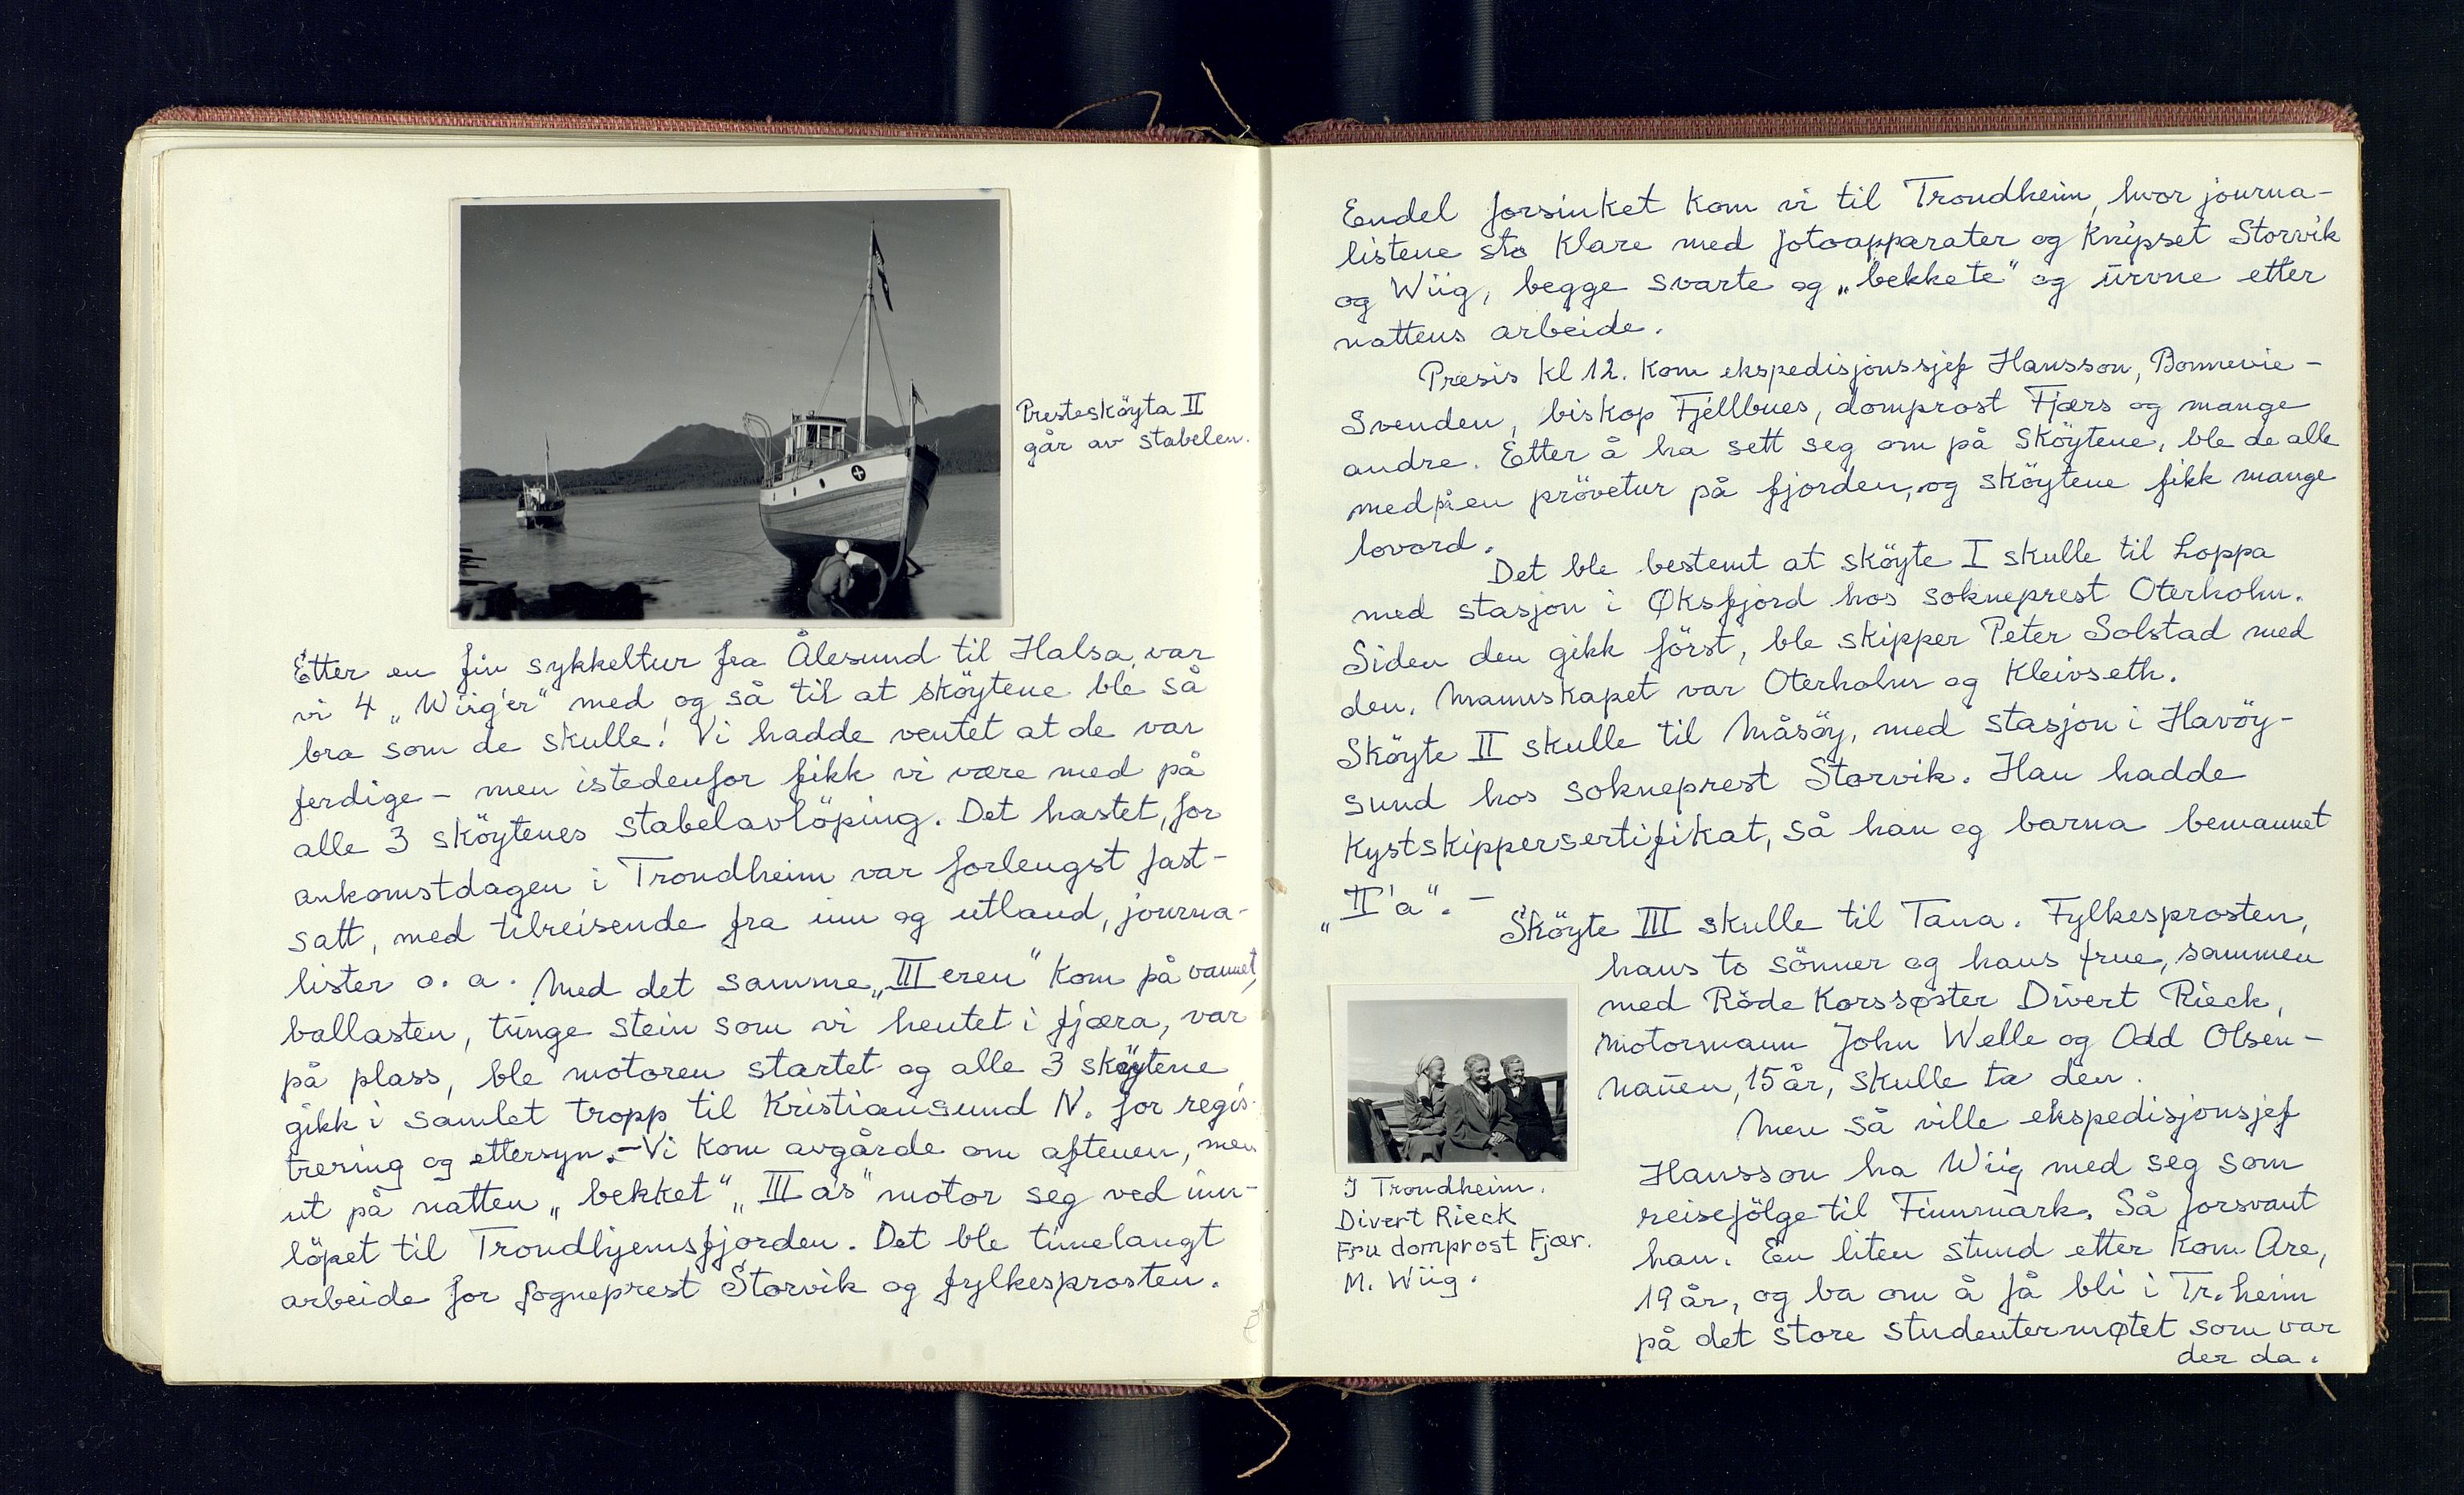 Presteskøyta II
går av stabelen.
Etter en fin sykkeltur fra Ålesund til Halsa, var
vi 4 „Wiig'er" med og så til at sköytene ble så
bra som de skulle! Vi hadde ventet at de var
ferdige - men istedenfor fikk vi være med på
alle 3 sköytenes stabelavlöping. Det hastet, for
ankomstdagen i Trondheim var forlengst fast-
satt, med tilreisende fra inn og utland, journa-
lister o. a. Med det samme „III eren" kom på vannet,
ballasten, tunge stein som vi hentet i fjæra, var
på plass, ble motoren startet og alle 3 sköytene
gikk i samlet tropp til Kristiansund N. for regis-
trering og ettersyn. - Vi kom avgårde om aftenen, men
ut på natten „bekket" „III a's" motor seg ved inn-
löpet til Trondhjemsfjorden. Det ble timelangt
arbeide for sogneprest Storvik og fylkesprosten.
Endel forsinket kom vi til Trondheim, hvor journa-
listene sto klare med fotoapparater og knipset Storvik
og Wiig, begge svarte og „bekkete" og urvne etter
nattens arbeide.
Presis kl 12. kom ekspedisjonssjef Hansson, Bonnevie-
Svenden, biskop Fjellbues, domprost Fjærs og mange
andre. Etter å ha sett seg om på sköytene, ble de alle
med på en prövetur på fjorden, og sköytene fikk mange
lovord.
Det ble bestemt at sköyte I skulle til Loppa
med stasjon i Øksfjord hos sokneprest Oterholm.
Siden den gikk först, ble skipper Peter Solstad med
den. Mannskapet var Oterholm og Kleivseth.
Sköyte II skulle til Måsöy, med stasjon i Havöy-
sund hos sokneprest Storvik. Han hadde
kystskippersertifikat, så han og barna bemannet
„II'a". -
Sköyte III skulle til Tana. Fylkesprosten,
hans to sönner og hans frue, sammen
med Röde Korssøster Divert Rieck,
motormann John Welle og Odd Olsen-
nauen, 15 år, skulle ta den.
Men så ville ekspedisjonsjef
Hansson ha Wiig med seg som
reisefölge til Finnmark. Så forsvant
han. En liten stund etter kom Are,
19 år, og ba om å få bli i Tr.heim
på det store studentermøtet som var
der da.
I Trondheim.
Divert Rieck
Fru domprost Fjær.
M. Wiig.